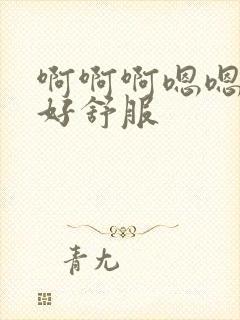 啊啊啊嗯嗯
好舒服
青尢